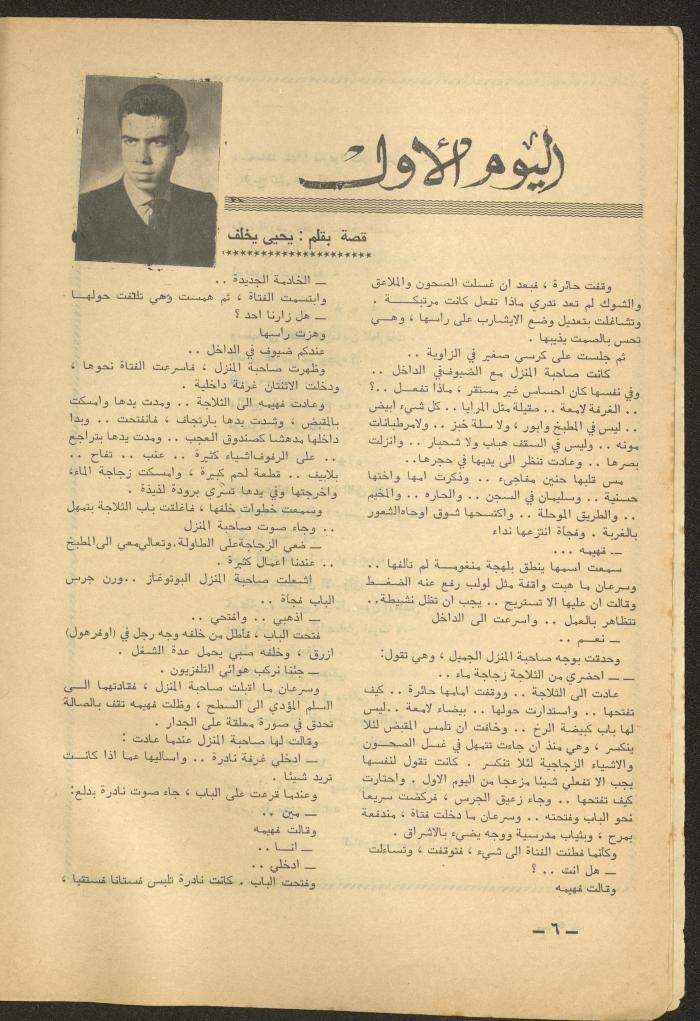 اليوم الأول
قصة بقلم : يحيى يخلف
وقفت حائرة ، فبعد ان غسلت الصحون والملاعق
والشوك لم تعد تدري ماذا تفعل كانت مرتبكة .
وتشاغلت بتعديل وضع الايشارب على راسها ، وهي
تحس بالصمت يذيبها .
ثم جلست على كرسي صغير في الزاوية ..
كانت صاحبة المنزل مع الضيوف في الداخل ..
وفي نفسها كان احساس غير مستقر ، ماذا تفعل ..؟
.. الغرفة لامعة .. صقيلة مثل المرايا .. كل شيء ابيض
.. ليس في المطبخ وابور ، ولا سلة خبز .. ولامرطبانات
مونه .. وليس في السقف هباب ولا شحبار .. وانزلت
بصرها .. وعادت تنظر الى يديها في حجرها..
مس قلبها حنين مفاجىء .. وذكرت امها واختها
حسنية .. وسليمان في السجن .. والحاره .. والمخيم
.. والطريق الموحلة .. واكتسحها شوق اوحاه الشعور
بالغربة . وفجأة انتزعها نداء
ــ فهيمه ...
سمعت اسمها ينطق بلهجة منغومة لم تالفها ..
وسرعان ما هبت واقفة مثل لولب رفع عنه الضغط
وقالت ان عليها الا تستريح .. يجب ان تظل نشيطة..
تتظاهر بالعمل .. واسرعت الى الداخل
ــ نعم ..
وحدقت بوجه صاحبة المنزل الجميل ، وهي تقول:
ــ ــ احضري من الثلاجة زجاجة ماء ..
عادت الى الثلاجة .. ووقفت امامها حائرة .. كيف
تفتحها .. واستدارت حولها .. بيضاء لامعة ..ليس
لها باب كبيضة الرخ .. وخافت ان تلمس المقبض لئلا
ينكسر ، وهي منذ ان جاءت تتمهل في غسل الصحون
والاشياء الزجاجية لئلا تنكسر . كانت تقول لنفسها
يجب الا تفعلي شيئا مزعجا من اليوم الاول . واحتارت
كيف تفتحها .. وجاء زعيق الجرس ، فركضت سريعا
نحو الباب وفتحته .. وسرعان ما دخلت فتاة ، مندفعة
بمرح ، وبثياب مدرسية ووجه يضيء بالاشراق .
وكانما فطنت الفتاة الى شيء ، فتوقفت ، وتساءلت
ــ هل انت .. ؟
وقالت فهيمه
ــ الخادمة الجديدة ..
وابتسمت الفتاة ، ثم همست وهي تلتفت حولها
ــ هل زارنا احد ؟
وهزت راسها
عندكم ضيوف في الداخل ..
وظهرت صاحبة المنزل ، فاسرعت الفتاة نحوها ،
ودخلت الاثنتان غرفة داخلية .
وعادت فهيمه الى الثلاجة .. ومدت يدها وامسكت
بالمقبض ، وشدت يدها بارتجاف ، فانفتحت .. وبدا
داخلها مدهشا كصندوق العجب .. ومدت يدها بتراجع
.. على الرفوف اشياء كثيرة .. عنب .. تفاح ..
بلابيف .. قطعة لحم كبيرة ، وامسكت زجاجة الماء،
واخرجتها وفي يدها تسري برودة لذيذة .
وسمعت خطوات خلفها ، فاغلقت باب الثلاجة بتمهل
.. وجاء صوت صاحبة المنزل
ــ ضعي الزجاجة على الطاولة.وتعالي معي الى المطبخ
.. عندنا اعمال كثيرة .
اشعلت صاحبة المنزل البوتوغاز ..ورن جرس
الباب فجأة ..
ــ اذهبي .. وافتحي ..
فتحت الباب ، فاطل من خلفه وجه رجل في (اوفرهول)
ازرق ، وخلفه صبي يحمل عدة الشغل .
ــ جئنا نركب هوائي التلفزيون .
وسرعان ما اقبلت صاحبة المنزل ، فقادتهما الى
السلم المؤدي الى السطح ، وظلت فهيمه تقف بالصالة
تحدق في صورة معلقة على الجدار .
وقالت لها صاحبة المنزل عندما عادت :
ــ ادخلي غرفة نادرة .. واساليها عما اذا كانت
تريد شيئا .
وعندما قرعت على الباب ، جاء صوت نادرة بدلع:
ــ مين ..
وقالت فهيمه
ــ انا ..
ــ ادخلي ..
وفتحت الباب . كانت نادرة تلبس فستانا فستقيا ،
ــ ٦ ــ